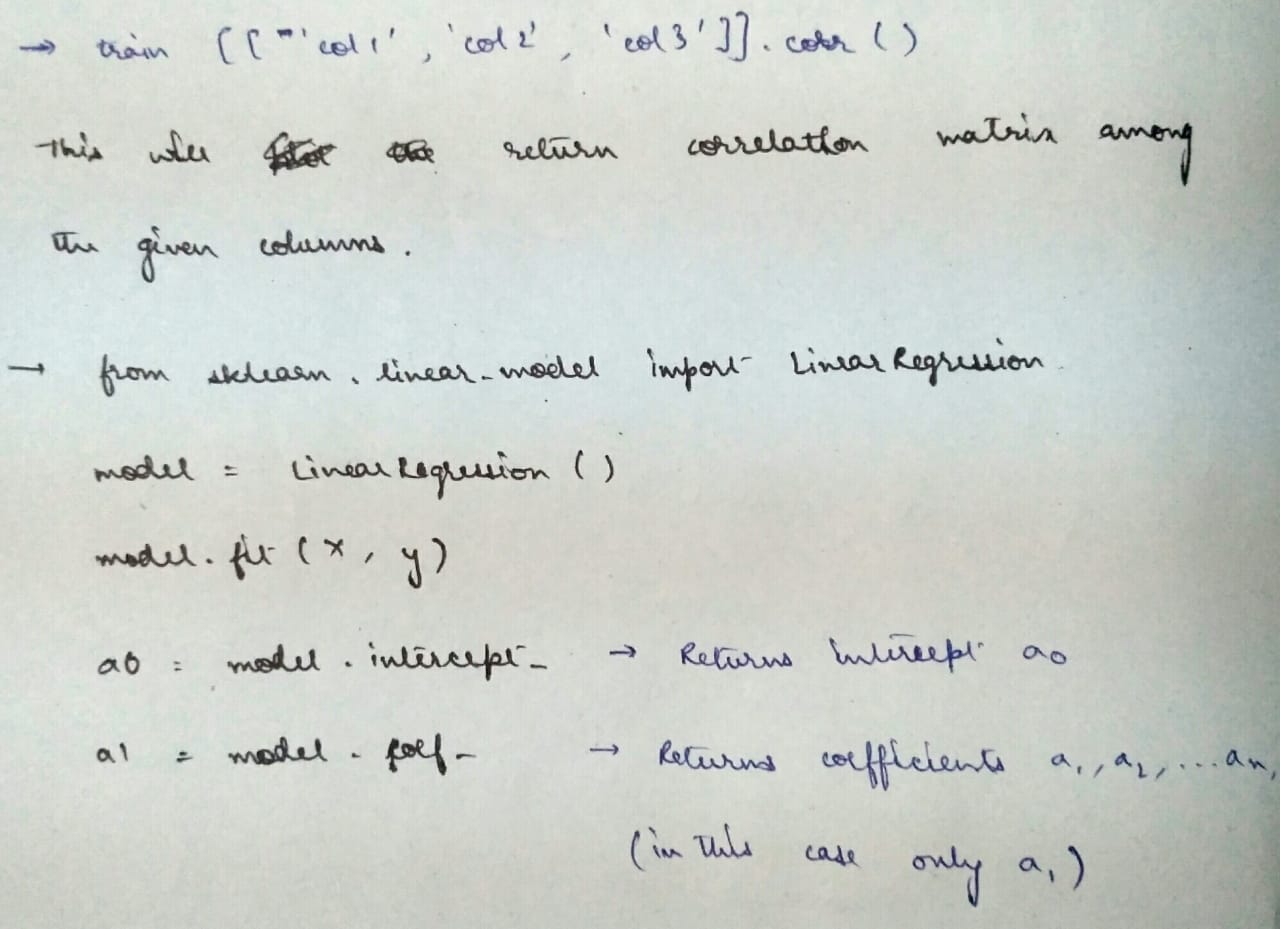 → train [["'col1', 'col2', 'col3']].corr()
This will return correlation matrix among
the given columns.
→ from sklearn.linear_model import LinearRegression
model = LinearRegression()
model.fit(x, y)
a0 = model.intercept_ → Returns intercept a0
a1 = model.coef_ → Returns coefficients a1, a2, ... an,
(in this case only a1)